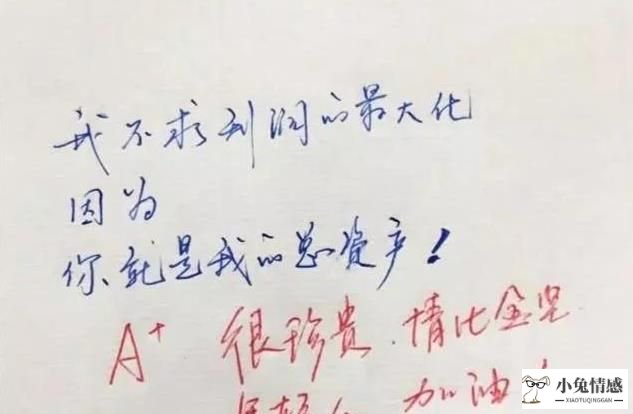 我不求利润的最大化
因为
你就是我的总资产！
A+ 很珍贵.情比金坚
加油
小兔情感
XIAOTUQINGGAN